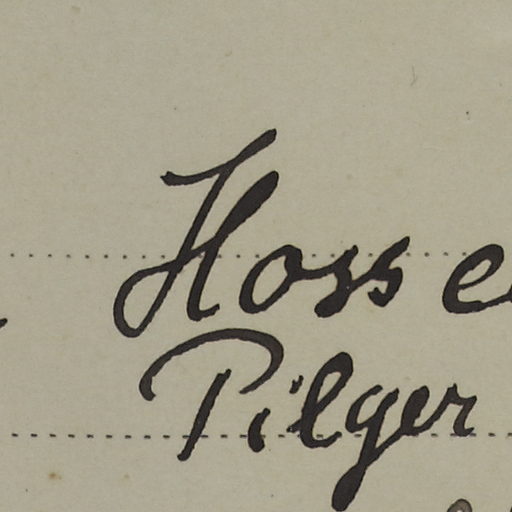 Hosse
Pilger